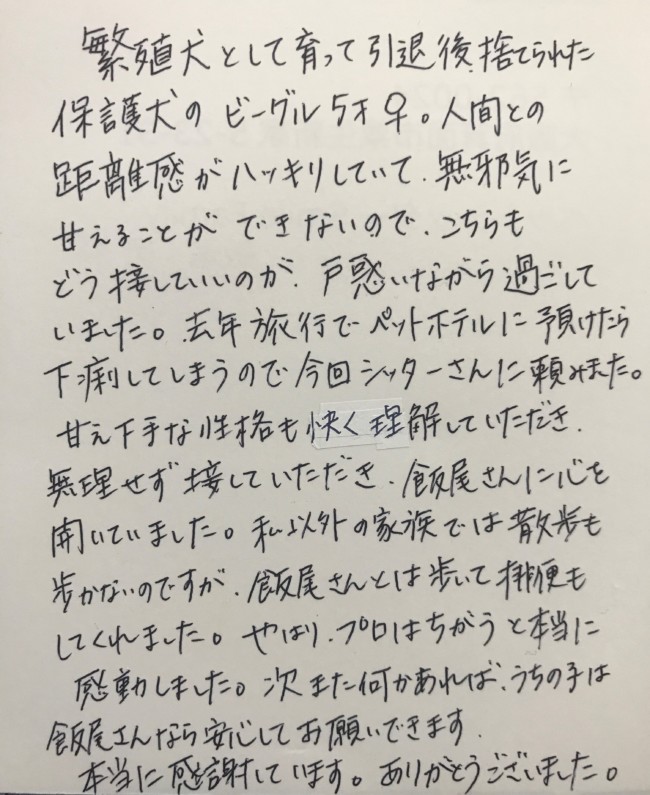 繁殖犬として育って引退後、捨てられた
保護犬の ビーグル5才♀。人間との
距離感がハッキリしていて、無邪気に
甘えることが できないので、こちらも
どう接していいのか、戸惑いながら過ごして
いました。去年旅行でペットホテルに預けたら
下痢してしまうので今回シッターさんに頼みました。
甘え下手な性格も快く理解していただき、
無理せず接していただき、飯尾さんに心を
開いていました。私以外の家族では散歩も
歩かないのですが、飯尾さんとは歩いて排便も
してくれました。やはり、プロはちがうと本当に
感動しました。次また何かあれば、うちの子は
飯尾さんなら安心してお願いできます。
本当に感謝しています。ありがとうございました。